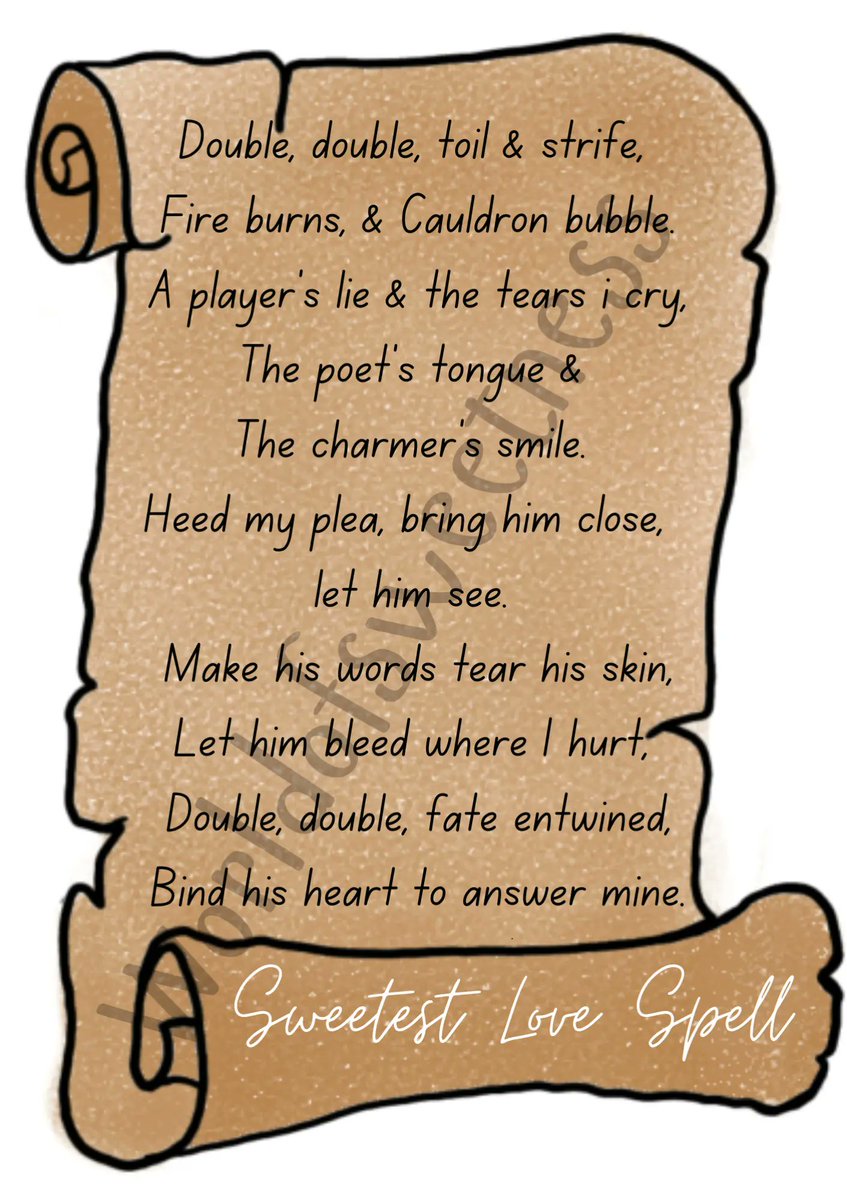 Double, double, toil & strife,
Fire burns, & Cauldron bubble.
A player's lie & the tears i cry,
The poet's tongue &
The charmer's smile.
Heed my plea, bring him close,
let him see.
Make his words tear his skin,
Let him bleed where I hurt,
Double, double, fate entwined,
Bind his heart to answer mine.
Sweetest Love Spell
Worldofsweetness